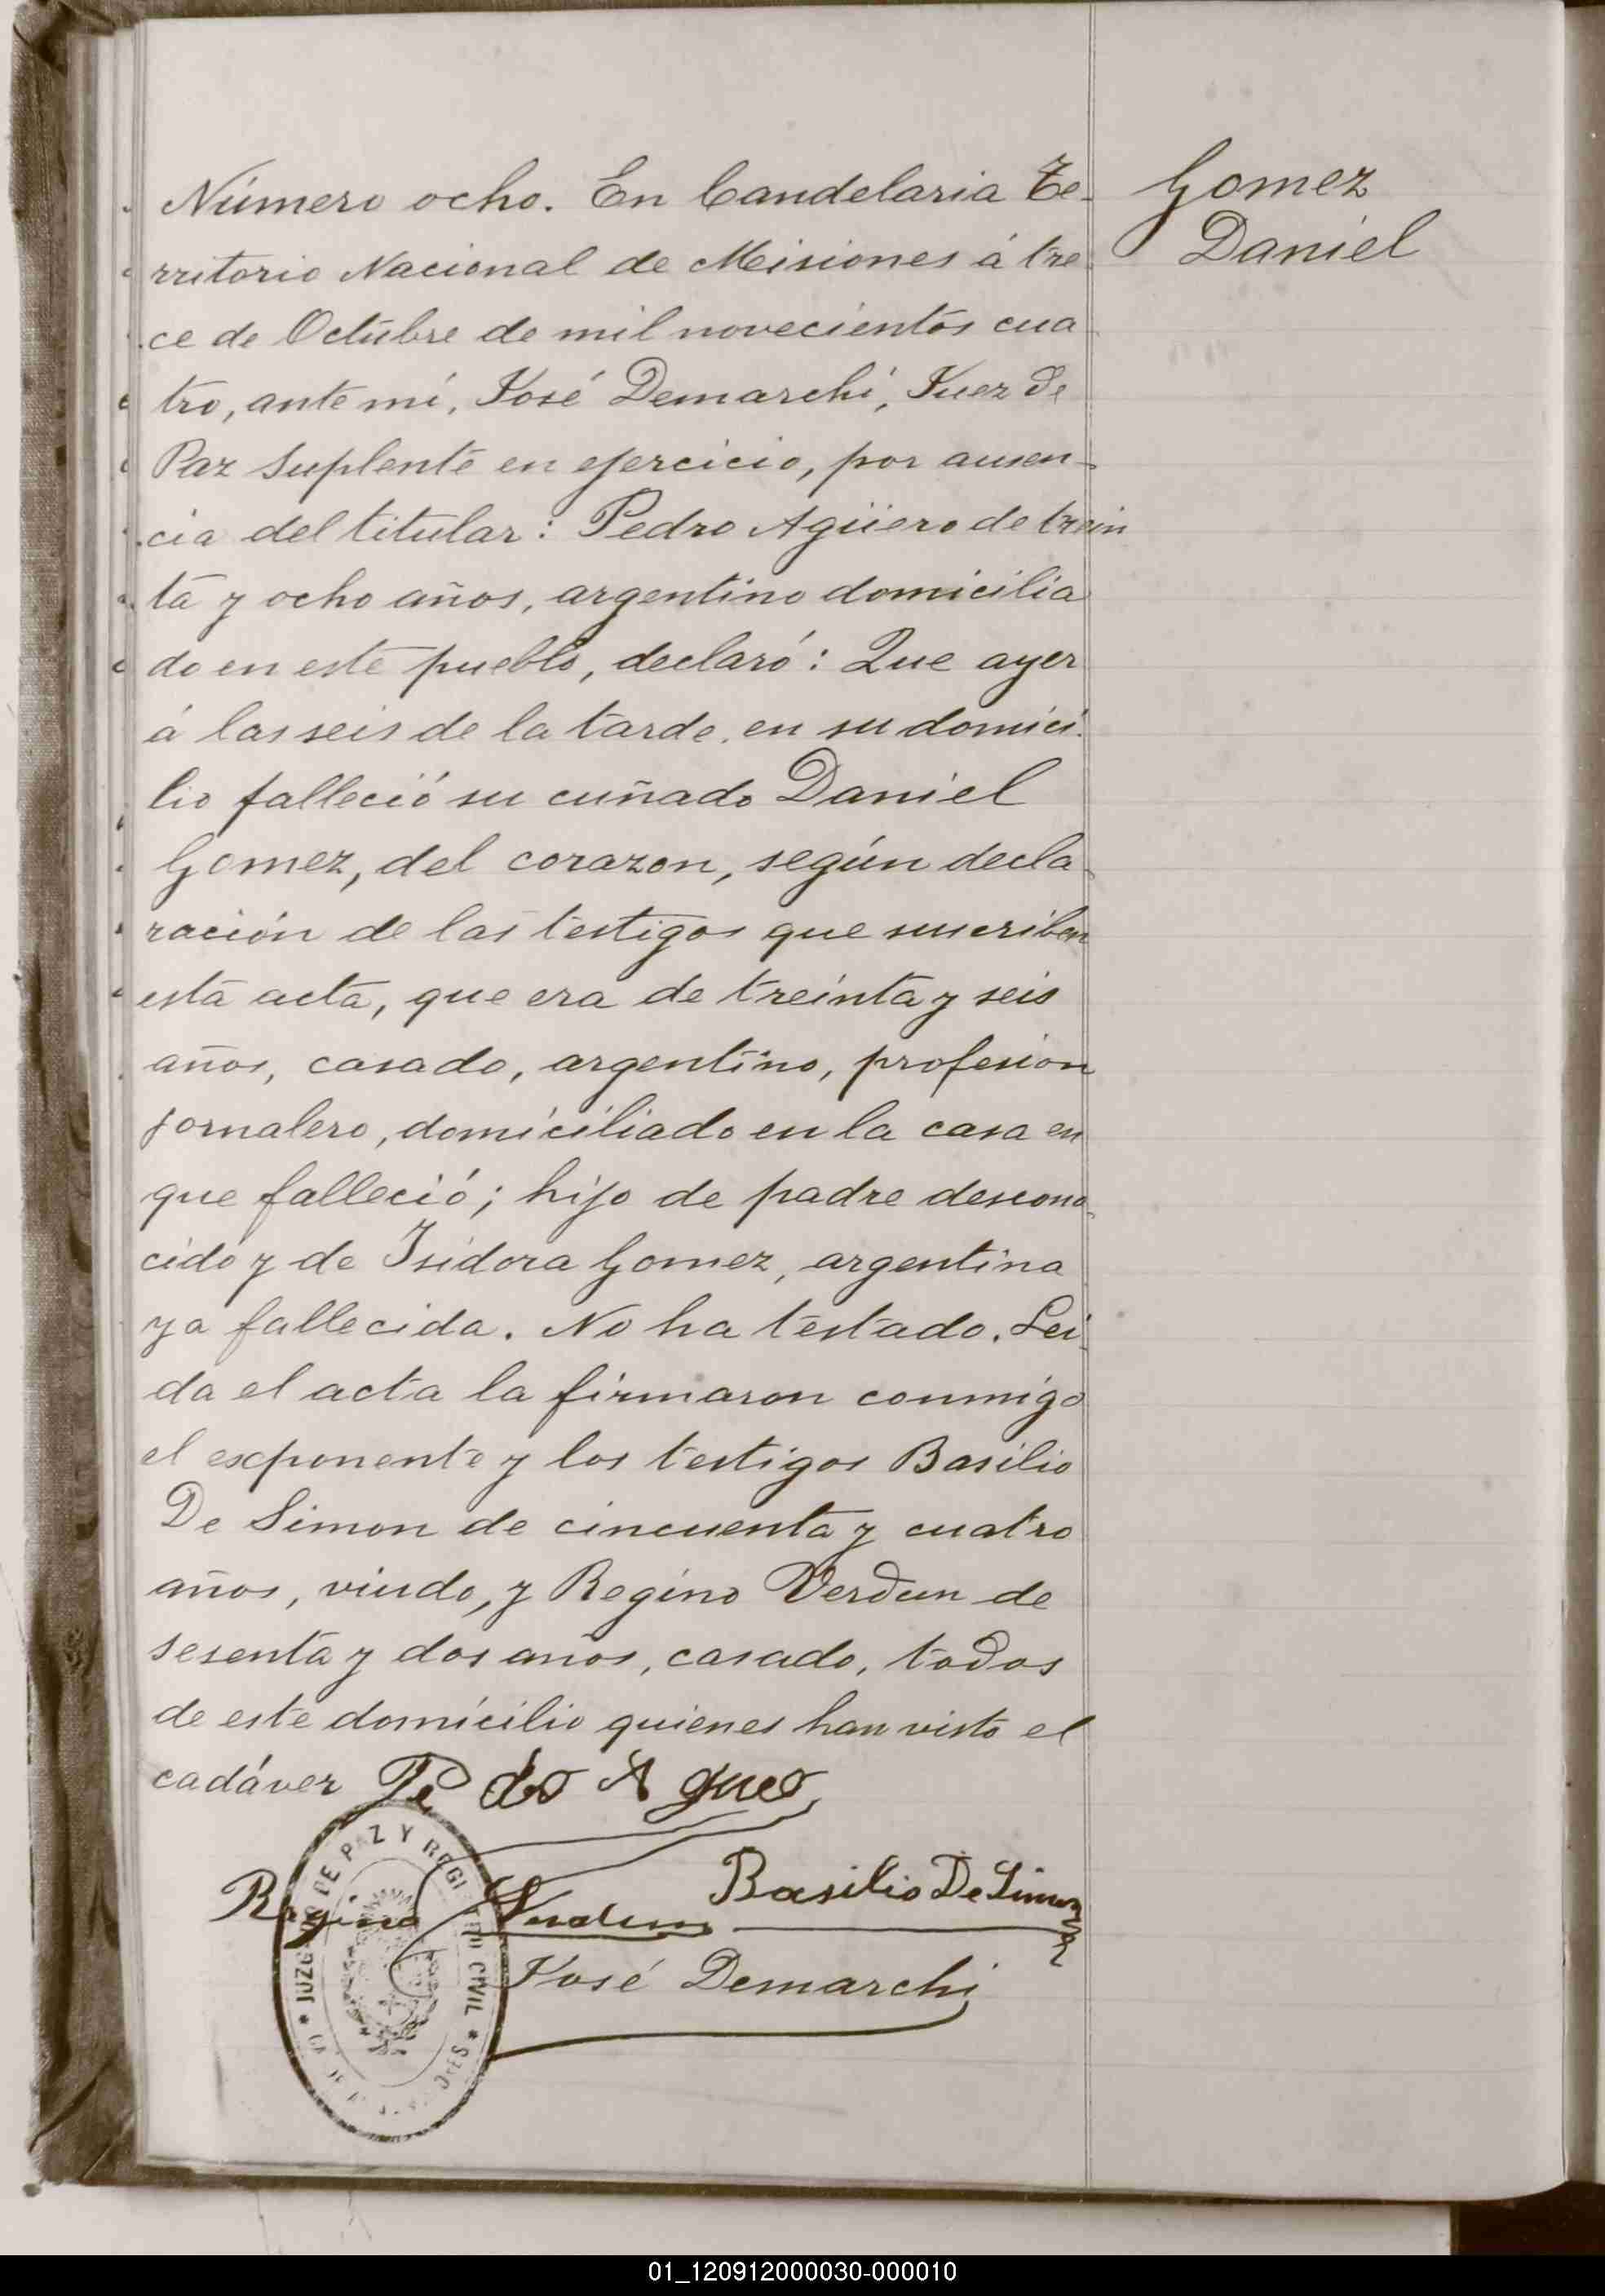 Número ocho. En Candelaria Te-
rritorio Nacional de Misiones á tre
ce de Octubre de mil novecientos cua
tro, ante mí, José Demarchi, Juez de
Paz Suplente en ejercicio, por ausen-
cia del titular: Pedro Agüero de trein
ta y ocho años, argentino domicilia
do en este pueblo, declaró: Que ayer
á las seis de la tarde, en su domici-
lio falleció su cuñado Daniel
Gomez, del corazon, según decla-
ración de los testigos que suscriben
esta acta, que era de treinta y seis
años, casado, argentino, profesion
jornalero, domiciliado en la casa en
que falleció; hijo de padre descono-
cido y de Isidora Gomez, argentina
ya fallecida. No ha testado. Lei-
da el acta la firmaron conmigo
el exponente y los testigos Basilio
De Simon de cincuenta y cuatro
años, viudo, y Regino Verdun de
sesenta y dos años, casado, todos
de este domicilio quienes han visto el
cadáver
Gomez
Daniel
Pedro Aguero
Regino Verdun
Basilio De Simon
José Demarchi
DE PAZ Y REGISTRO CIVIL
01_120912000030-000010